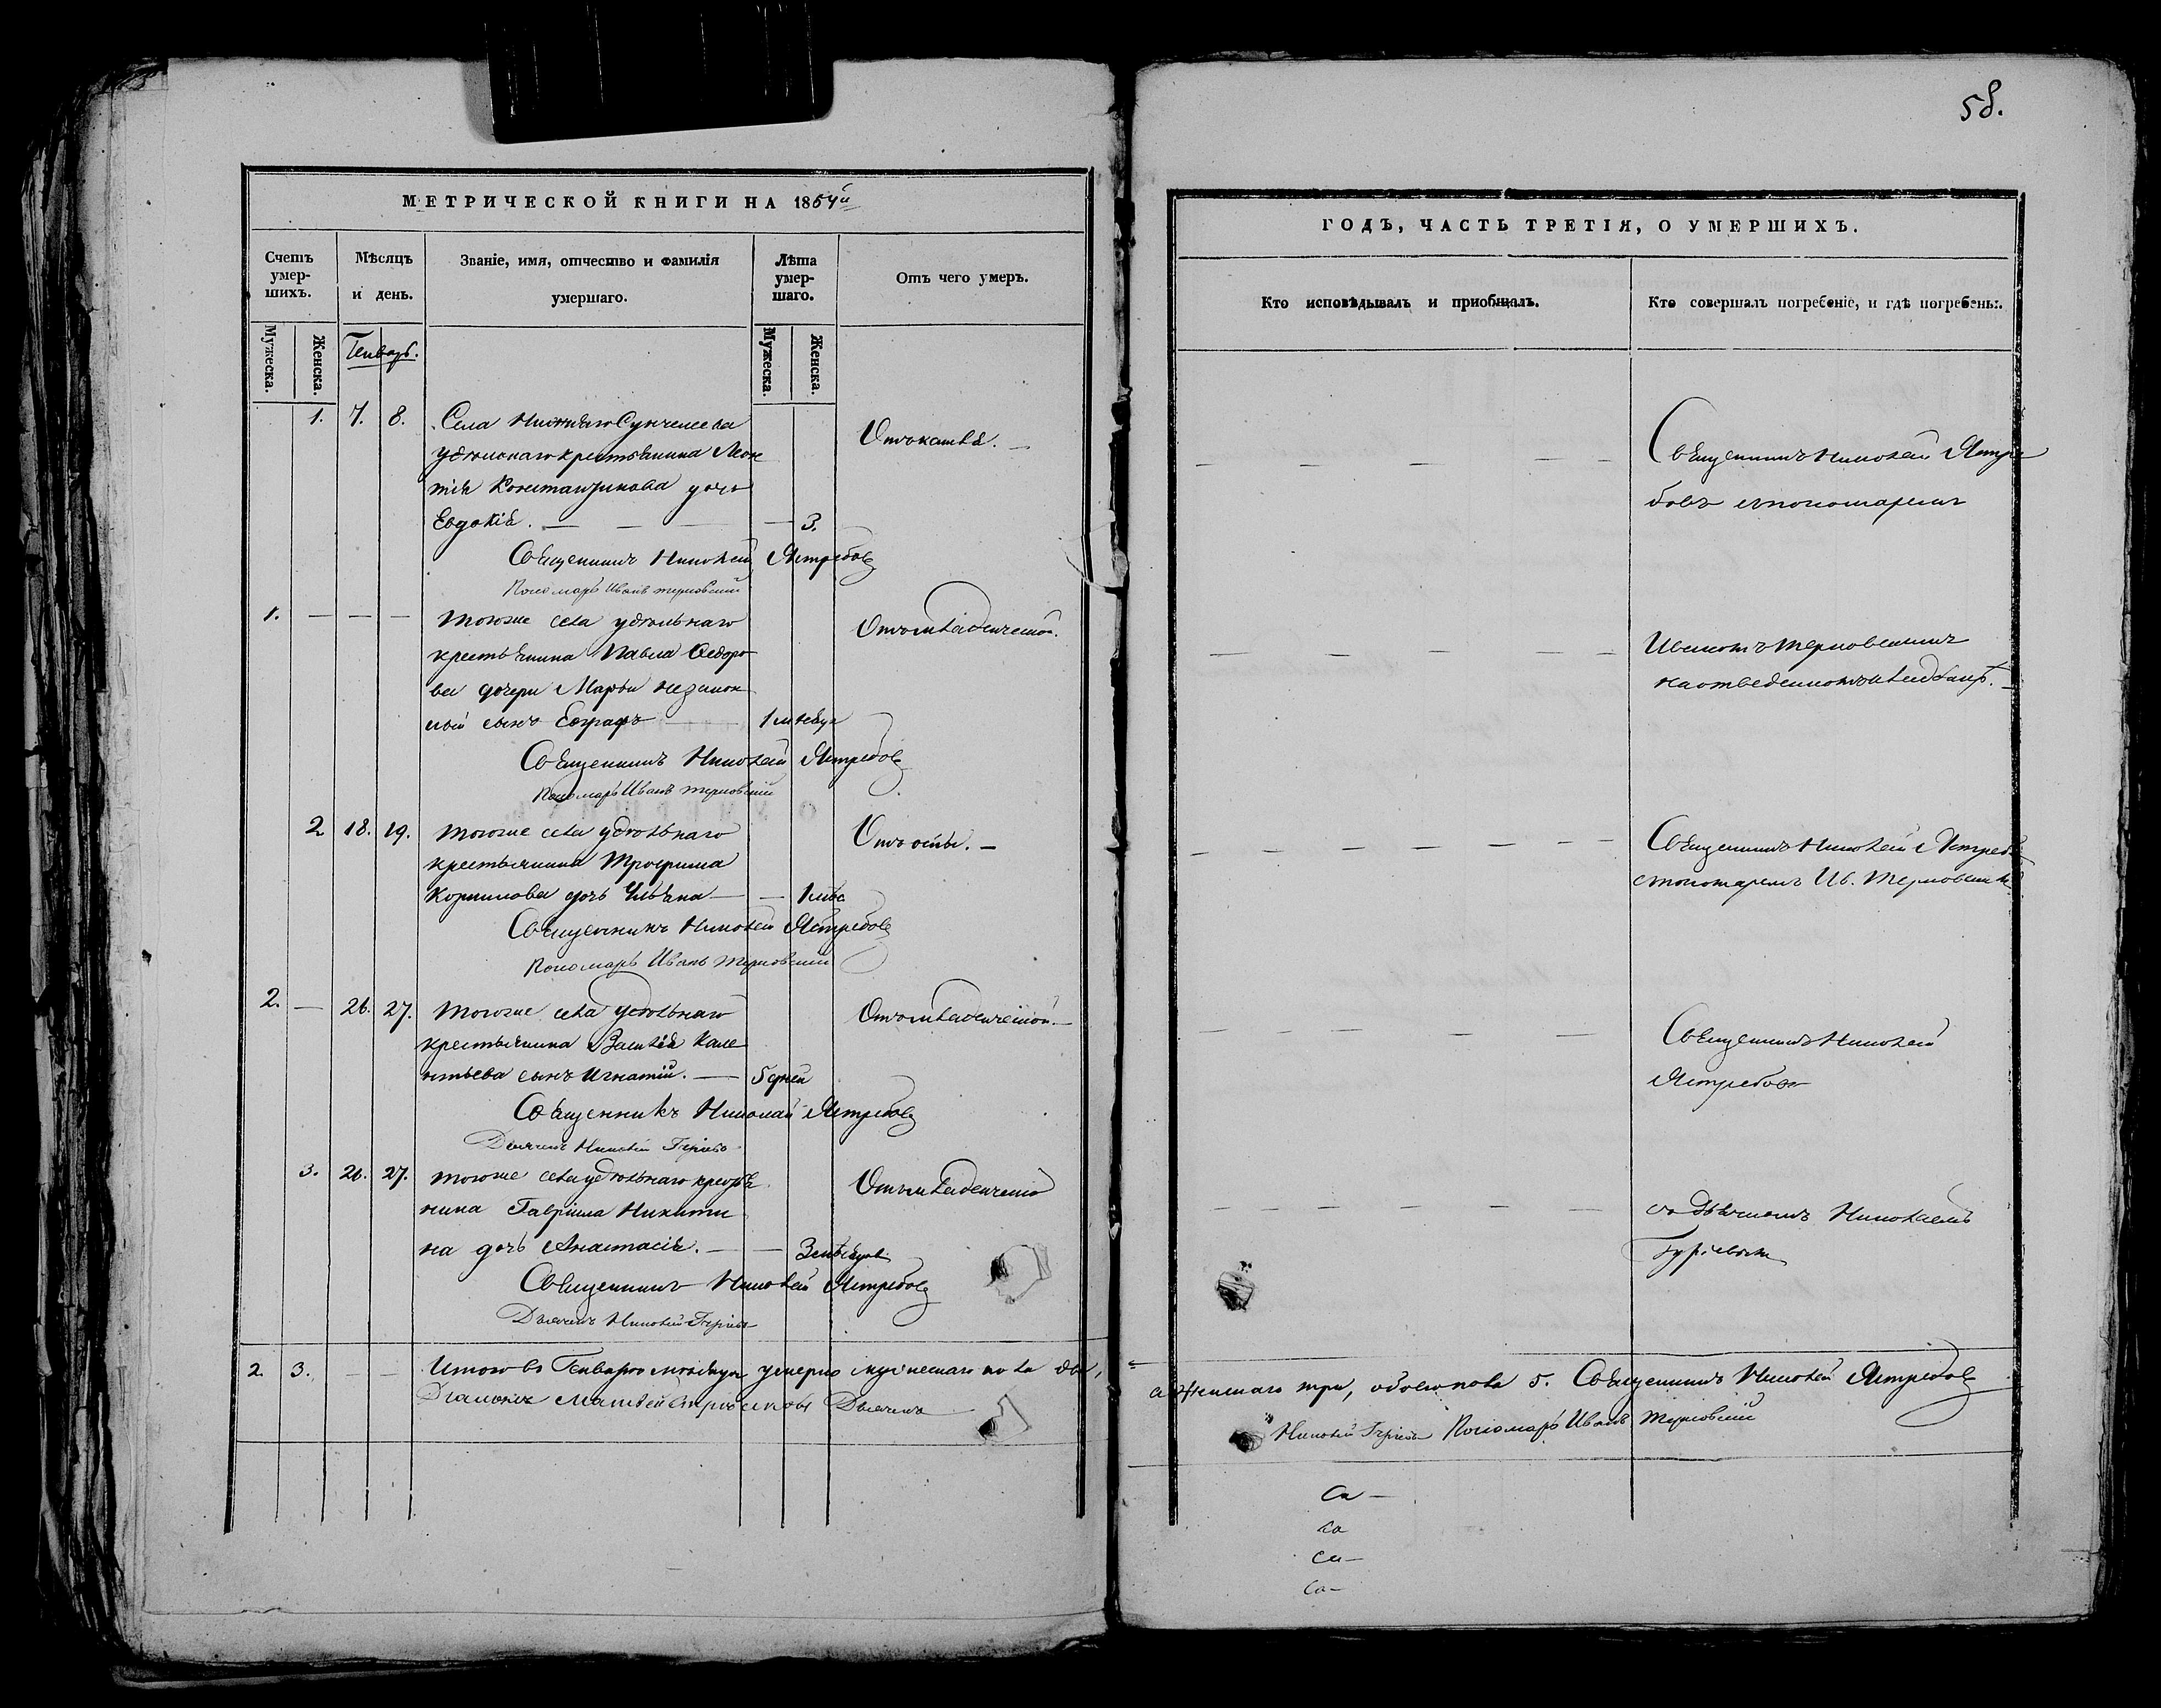 58.
МЕТРИЧЕСКОЙ КНИГИ НА 1864й
Счетъ умер-шихъ.
Мѣсяцъ и день.
Званіе, имя, отчество и фамилія умершаго.
Лѣта умер-шаго.
Отъ чего умеръ.
Мужеска.
Женска.
Генварь.
Мужеска.
Женска.
1. 7. 8. Села Нижняго Сунчелеева
удѣльнаго крестьянина Леон
тія Константинова дочь
Евдокія. — — — — 3.
Отъ кашля. —
Священникъ Николай Ястребовъ
Пономарь Иванъ Терновскій
1. — — — Тогоже села удѣльнаго
крестьянина Павла Ѳедоро
ва дочери Марьи незакон
ный сынъ Евграфъ — 1 мѣсяца
Отъ младенческой.
Священникъ Николай Ястребовъ
Пономарь Иванъ Терновскій
2 18. 19. Тогоже села удѣльнаго
крестьянина Трофима
Корнилова дочь Ульяна — — 1 мѣс
Отъ оспы. —
Священникъ Николай Ястребовъ
Пономарь Иванъ Терновскій
2. — 26. 27. Тогоже села удѣльнаго
крестьянина Василія
сынъ Игнатій. — 5 дней
Отъ младенческой. —
Священникъ Николай Ястребовъ
Дьячекъ Николай Гурьевъ
3. 26. 27. Тогоже села удѣльнаго крестья
нина Гавріила Никити
на дочь Анастасія. — — 3 мѣсяцов.
Отъ младенческой
Священникъ Николай Ястребовъ
Дьячекъ Николай Гурьевъ
2. 3. — — Итого въ Генварѣ мѣсяцѣ умерло мужескаго пола два,
Діаконъ Матвей Дьячекъ
ГОДЪ, ЧАСТЬ ТРЕТІЯ, О УМЕРШИХЪ.
Кто исповѣдывалъ и приобщалъ.
Кто совершалъ погребеніе, и гдѣ погребены.
Священникъ Николай Ястре
бовъ съ пономаремъ
Иваномъ Терновскимъ
на отведенномъ кладбищѣ. —
Священникъ Николай Ястребовъ
съ пономаремъ Ив. Терновскимъ
Священникъ Николай
Ястребовъ
съ дьячкомъ Николаемъ
Гурьевымъ
а женскаго три, обоего пола 5. Священникъ Николай Ястребовъ
Николай Гурьевъ Пономарь Иванъ Терновскій